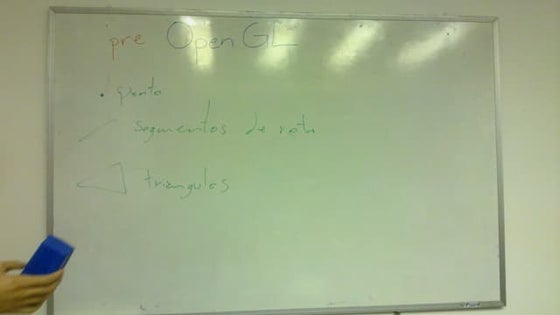 pre OpenGL
ponto
segmentos de reta
triangulos